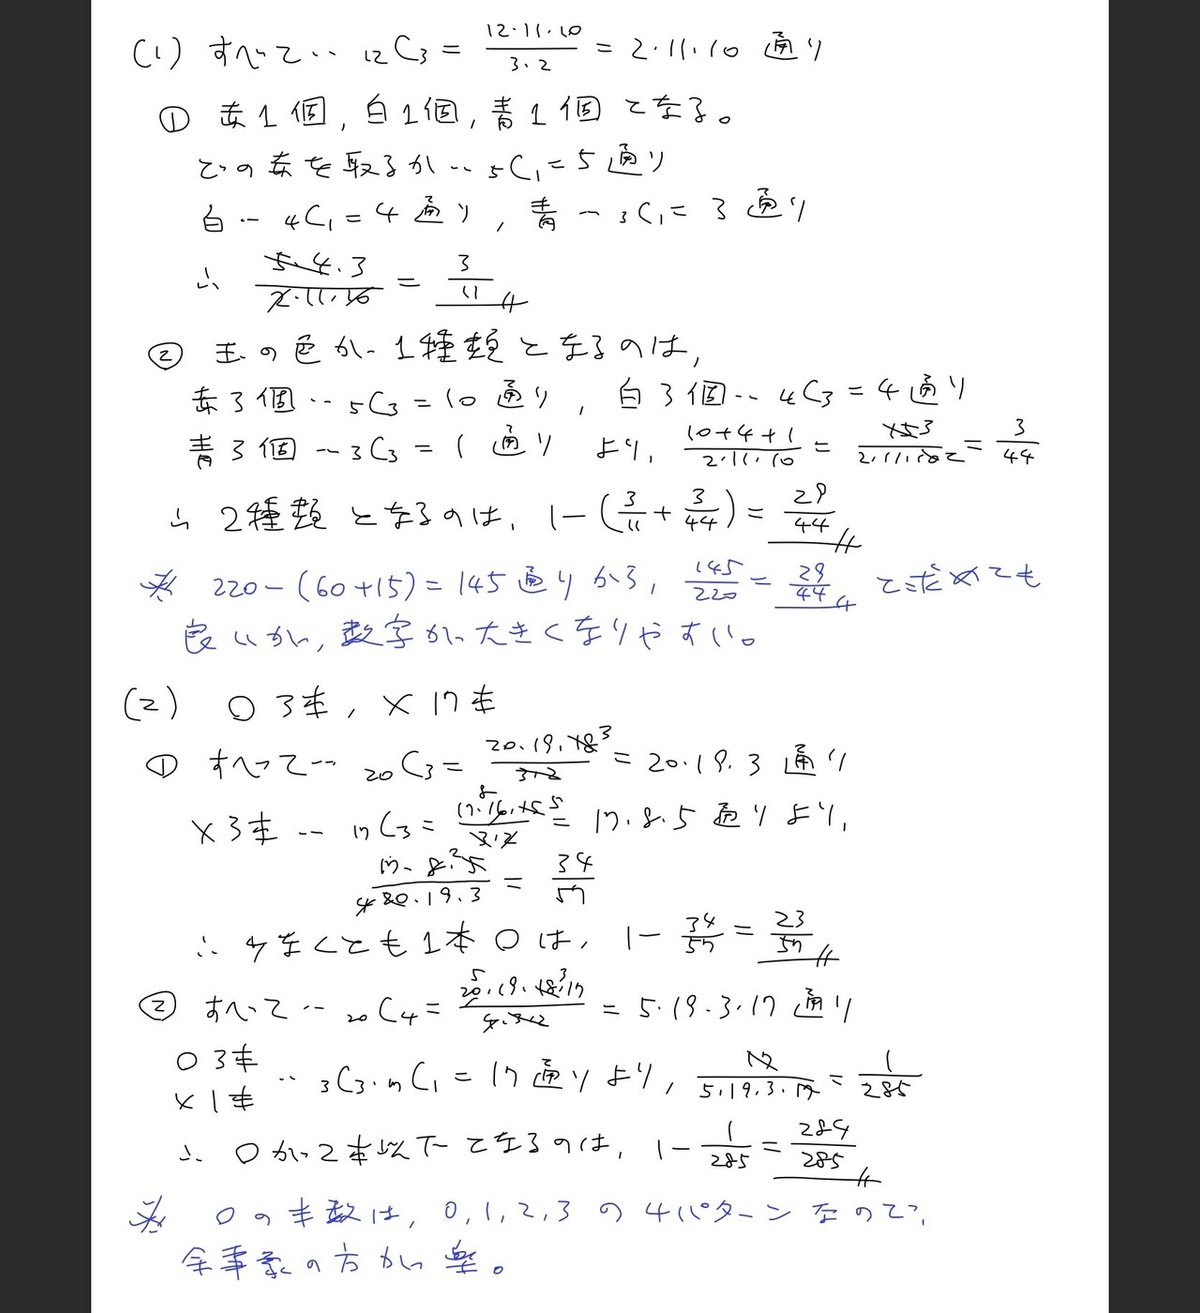 (1) すべて‥ ₁₂C₃ = 12・11・10/3・2 = 2・11・10 通り
① 赤1個, 白1個, 青1個 となる。
どの赤を取るか‥ ₅C₁ = 5 通り
白‥ ₄C₁ = 4 通り, 青‥ ₃C₁ = 3 通り
∴ 5・4・3/2・11・10 = 3/11
② 玉の色が1種類となるのは,
赤3個‥ ₅C₃ = 10 通り, 白3個‥ ₄C₃ = 4 通り
青3個‥ ₃C₃ = 1 通り より, 10+4+1/2・11・10 = 15 3/2・11・10 2 = 3/44
∴ 2種類となるのは, 1-(3/11+3/44) = 29/44
※ 220-(60+15)=145 通りから, 145/220 = 29/44 と求めても
良いが, 数字が大きくなりやすい。
(2) ○ 3本, × 17本
① すべて‥ ₂₀C₃ = 20・19・18 3/3・2 = 20・19・3 通り
×3本‥ ₁₇C₃ = 17・16 8・15 5/3・2 = 17・8・5 通りより,
17・8 2・5/4 20・19・3 = 34/57
∴ 少なくとも1本○は, 1-34/57 = 23/57
② すべて‥ ₂₀C₄ = 5 20・19・18 3・17/4・3・2 = 5・19・3・17 通り
○3本
×1本 ‥ ₃C₃・₁₇C₁ = 17 通りより, 17/5・19・3・17 = 1/285
∴ ○が2本以下となるのは, 1-1/285 = 284/285
※ ○の本数は, 0, 1, 2, 3 の4パターンなので,
余事象の方が楽。